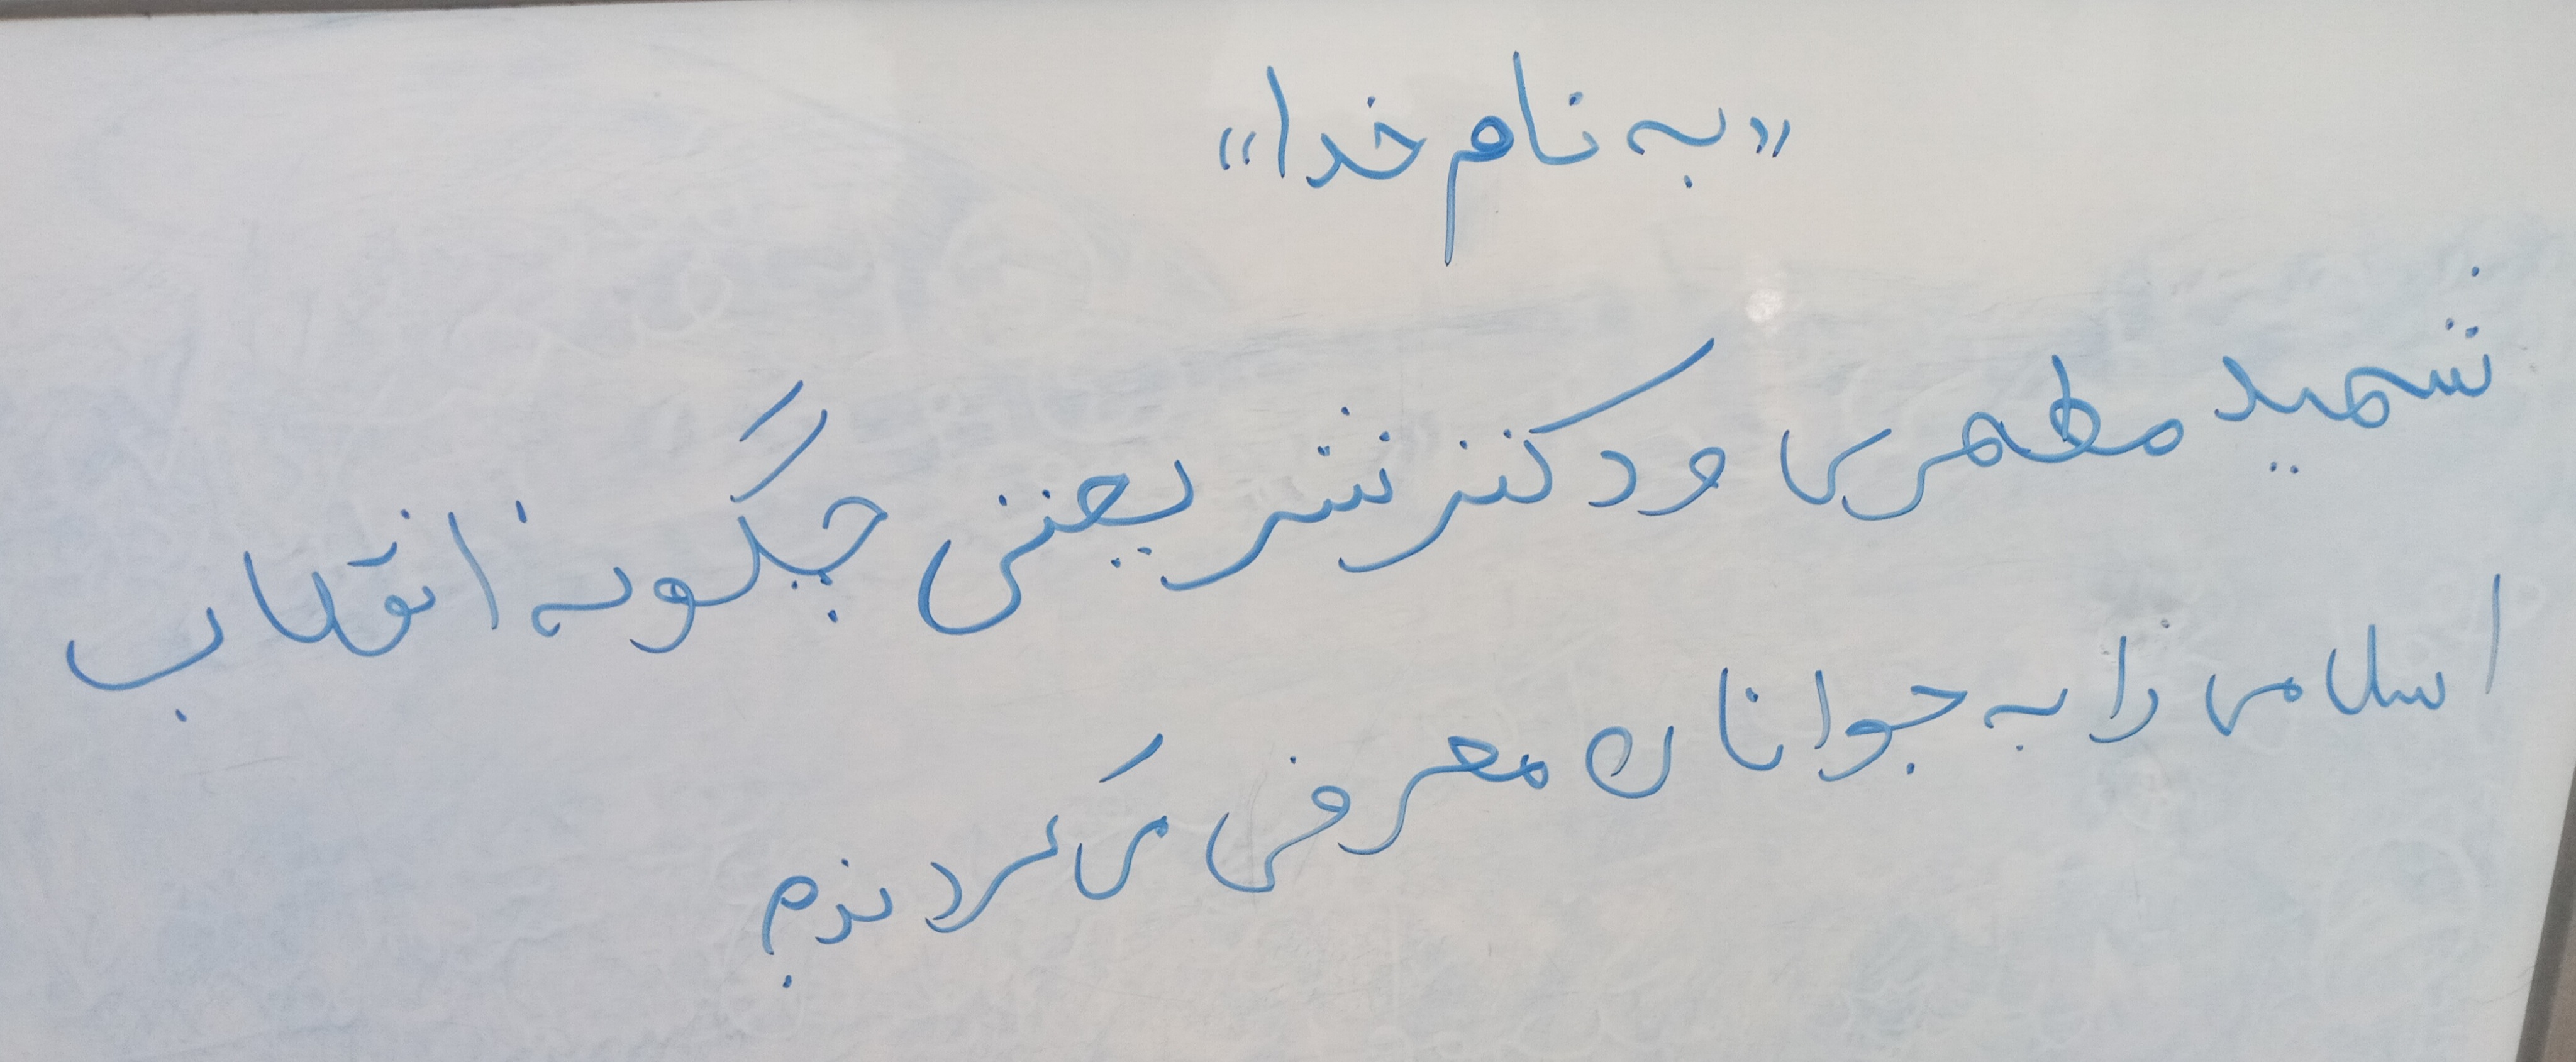 «به نام خدا»
شهید مطهری و دکتر شریعتی چگونه انقلاب
اسلامی را به جوانان معرفی می کردند؟